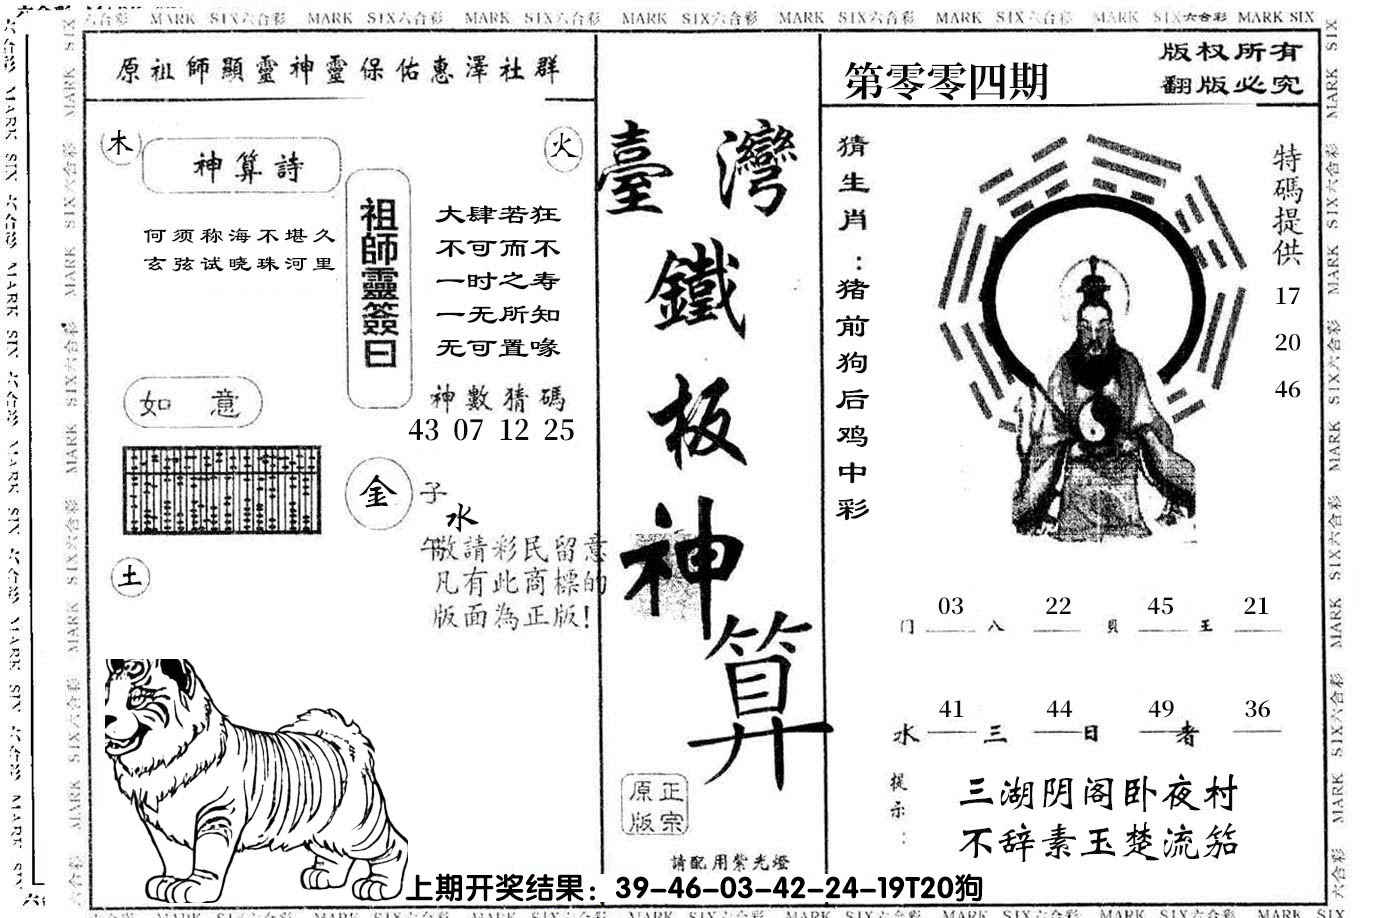 MARK SIX六合彩 MARK SIX六合彩 MARK SIX六合彩 MARK SIX六合彩 MARK SIX六合彩 MARK SIX六合彩 MARK SIX六合彩 MARK SIX
原祖師顯靈神靈保佑惠澤社群
木
火
神算詩
何须称海不堪久
玄弦试晓珠河里
祖師靈簽曰
大肆若狂
不可而不
一时之寿
一无所知
无可置喙
神數猜碼
43 07 12 25
如 意
金
子
水
午
土
敬請彩民留意
凡有此商標的
版面為正版!
臺灣
鐵
板
神
算
正宗
原版
請配用紫光燈
第零零四期
版权所有
翻版必究
猜生肖:猪前狗后鸡中彩
特碼提供
17
20
46
03 22 45 21
门 八 貝 王
41 44 49 36
水 三 日 者
提示:
三湖阴阁卧夜村
不辞素玉楚流笳
上期开奖结果：39-46-03-42-24-19T20狗